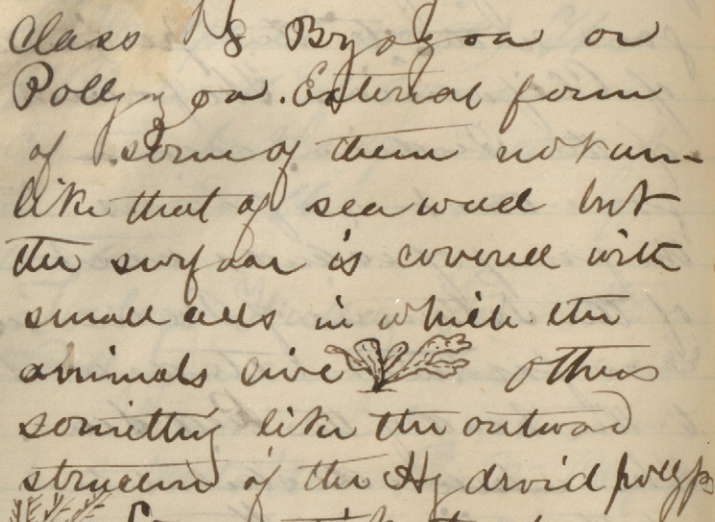 Class 8 Byozoa or
Pollyzoa. External form
of some of them not un-
like that of sea weed but
the surface is covered with
small cells in which the
animals live others
something like the outward
structure of the Hydroid pollyps